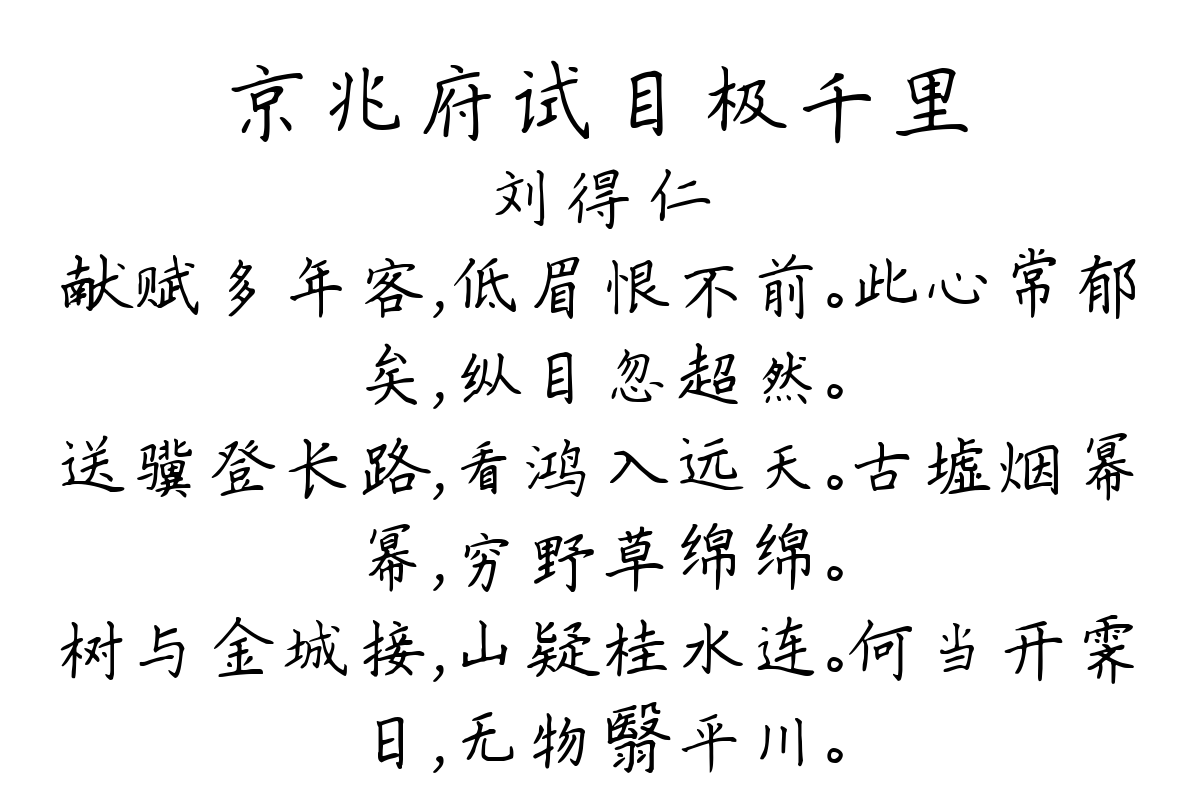 京兆府试目极千里
刘得仁
献赋多年客,低眉恨不前。此心常郁
矣,纵目忽超然。
送骥登长路,看鸿入远天。古墟烟幂
幂,穷野草绵绵。
树与金城接,山疑桂水连。何当开霁
日,无物翳平川。